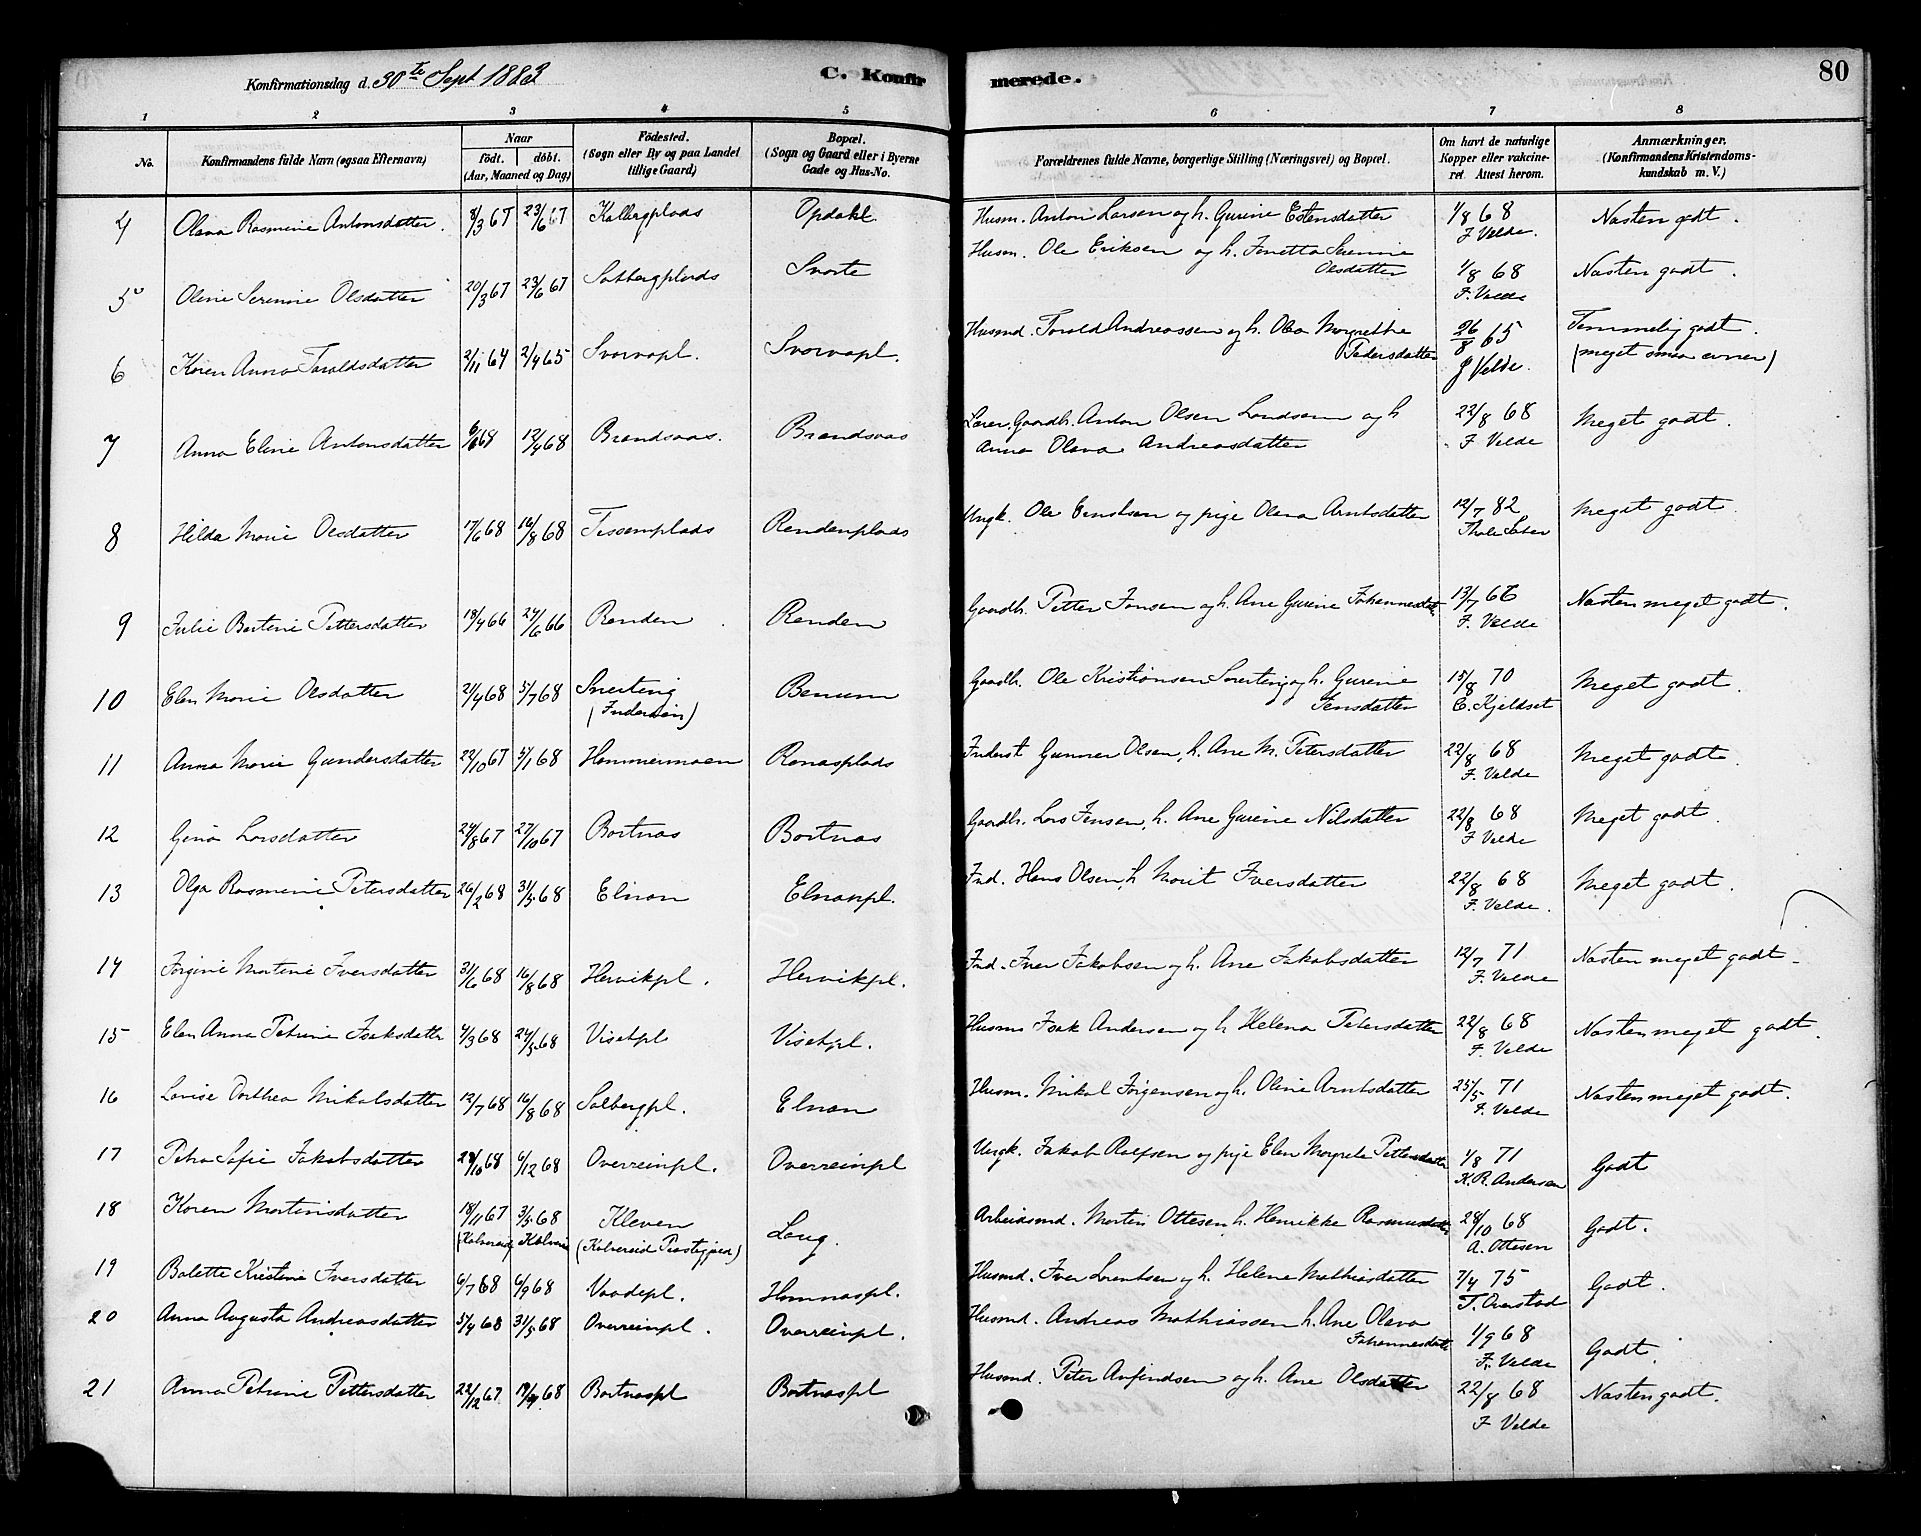 Konfirmationsdag d. 30te Sept 1883 C. Konfir merede. 80
1 2 3 4 5 6 7 8
No. Konfirmandens fulde Navn (ogsaa Efternavn) Naar födt. döbt. (Aar, Maaned og Dag) Födested. (Sogn eller By og paa Landet tillige Gaard) Bopæl. (Sogn og Gaard eller i Byerne Gade og Hus-No. Forældrenes fulde Navne, borgerlige Stilling (Næringsvei) og Bopæl. Om havt de naturlige Kopper eller vakcineret. Attest herom. Anmærkninger. (Konfirmandens Kristendomskundskab m. V.)
4 Olava Rasmine Antonsdatter. 8/3 67 23/6 67 Kolbergplads Opdahl. Husm. Anton Larsen og h. Gurine Estensdatter 1/8 68 F. Velde. Næsten godt.
5 Oline Serenne Olsdatter 20/3 67 23/6 67 Solbergplads Svarte Husm. Ole Eriksen og h. Serenne Olsdatter 1/8 68 F. Velde Næsten godt.
6 Karen Anna Taraldsdatter 2/11 64 2/4 65 Svarvapl. Svarvapl. Husmd. Torald Andreassen og h. Olea Margrethe Pedersdatter 26/8 65 F Velde. Temmelig godt. (meget smaa evner)
7 Anna Eline Antonsdatter 68 12/4 68 Brandsaas. Brandsaas Lærer. Gaardb. Anton Olsen Landsem og h Anna Olava Andreasdatter 22/8 68 F Velde Meget godt.
8 Hilda Marie Olsdatter 17/6 68 16/8 68 Tissemplads Rendenplads Ungk. Ole og pige Olava Arntsdatter 12/7 82 Meget godt.
9 Julie Bertine Pettersdatter 18/4 66 24/6 66 Renden Renden Gaardb. Petter Jonsen og h. Ane Gurine Johannesdatt. 13/7 66 F. Velde Næsten meget godt.
10 Elen Marie Olsdatter 21/4 68 5/7 68 Snerting (Inderøen) Benum Gaardb. Ole Kristiansen Snerting og h. Gurine Jensdatter 15/8 70 C. Kjeldset Meget godt.
11 Anna Marie Gundersdatter 22/10 67 5/1 68 Hammermoen Ronasplads Inderst Gunner Olsen, h. Ane M. Petersdatter 22/8 68 F. Velde Meget godt.
12 Gina Larsdatter 24/8 67 27/10 67 Bortnas Bortnas Gaardb. Lars Jensen, h. Ane Gurine Nilsdatter 22/8 68 F Velde Meget godt.
13 Olga Rasmine Petersdatter 26/2 68 31/5 68 Elnan Elnanpl. Ind. Hans Olsen, h Marit Iversdatter 22/8 68 F. Velde. Meget godt.
14 Jørgine Martine Iversdatter 31/6 68 16/8 68 Hervikpl. Hervikpl. Ind. Iver Jakobsen og h. Ane Jakobsdatter 12/7 71 F. Velde Næsten meget godt.
15 Elen Anna Petrine Isaksdatter 4/3 68 24/5 68 Visetpl Visetpl. Husm Isak Andersen og h Helena Petersdatter 22/8 68 F. Velde Næsten meget godt.
16 Lovise Dorthea Mikalsdatter 12/7 68 16/8 68 Solbergpl. Elnan Husm. Mikal Jørgensen og h. Oline Arntsdatter 25/5 71 F. Velde Næsten meget godt.
17 Petra Sofie Jakobsdatter 68 6/12 68 Overreinpl. Overreinpl Ungk. Jakob Rolfsen og pige Elen Margreta Pettersdatter 1/8 71 K. R. Andersen Godt
18 Karen Martinsdatter 18/11 67 3/5 68 Kleven (Kolvereid Prestegjeld) Laug. Arbeidsmd. Martin Ottesen, h. Henrikke Rasmusdatter 28/10 68 A. Ottesen Godt.
19 Bolette Kristine Iversdatter 6/7 68 6/9 68 Vaadepl. Homnaspl. Husmd. Iver Lorentsen og h. Helene Mathiasdatter 7/4 75 T. Overstad Godt.
20 Anna Augusta Andreasdatter 5/4 68 31/5 68 Overreinpl. Overreinpl. Husmd. Andreas Mathiassen h. Ane Olava Johannesdatt 1/9 68 F. Velde Godt.
21 Anna Petrine Pettersdatter 22/12 67 68 Bortnaspl Bortnaspl Husmd. Peter Arfindsen og h. Ane Olsdatter 22/8 68 F Velde Næsten godt.